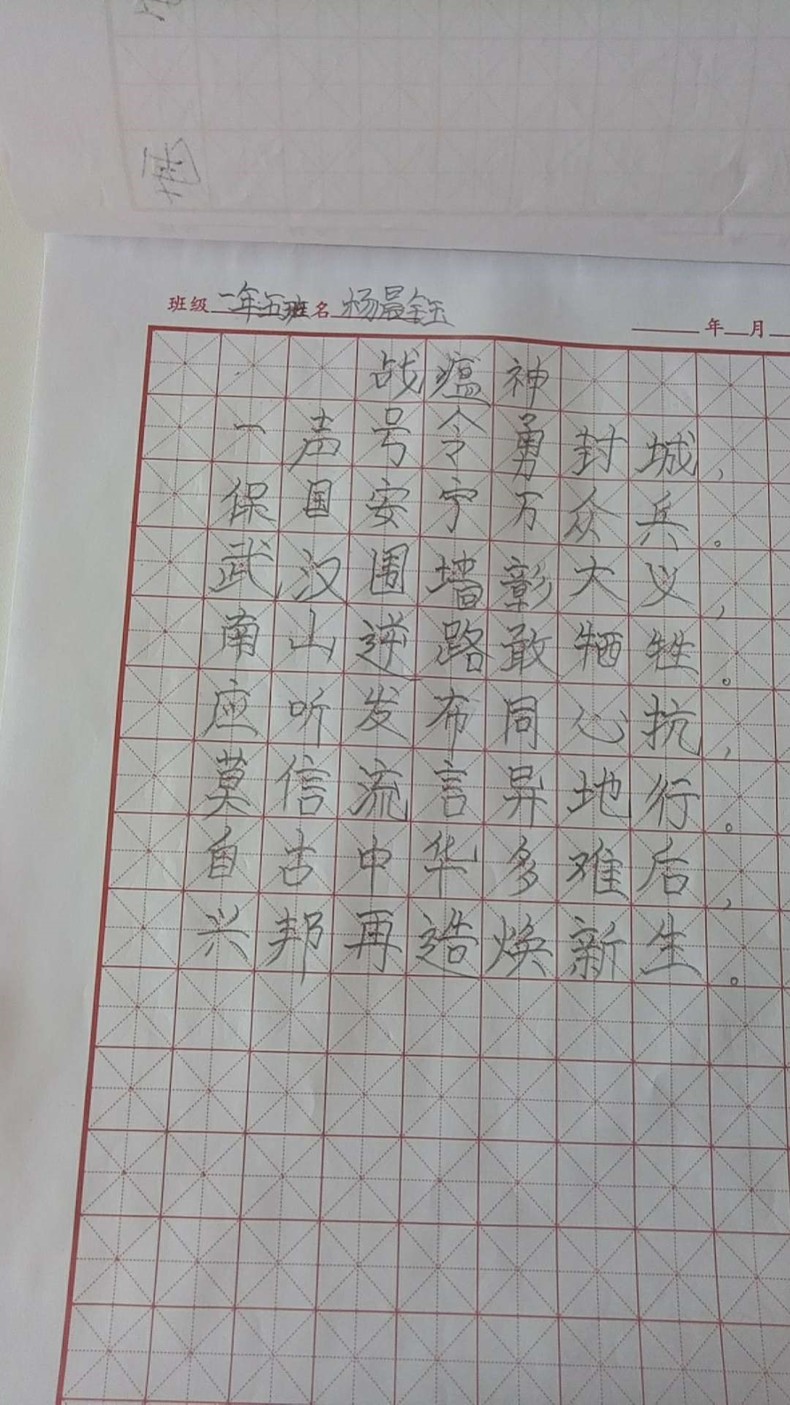 班级 一年五班 名 杨晨宝玉
年 月
战瘟神
一声号令勇封城，
保国安宁万众兵。
武汉围墙彰大义，
南山逆路敢牺牲。
应听发布同心抗，
莫信流言异地行。
自古中华多难后，
兴邦再造焕新生。